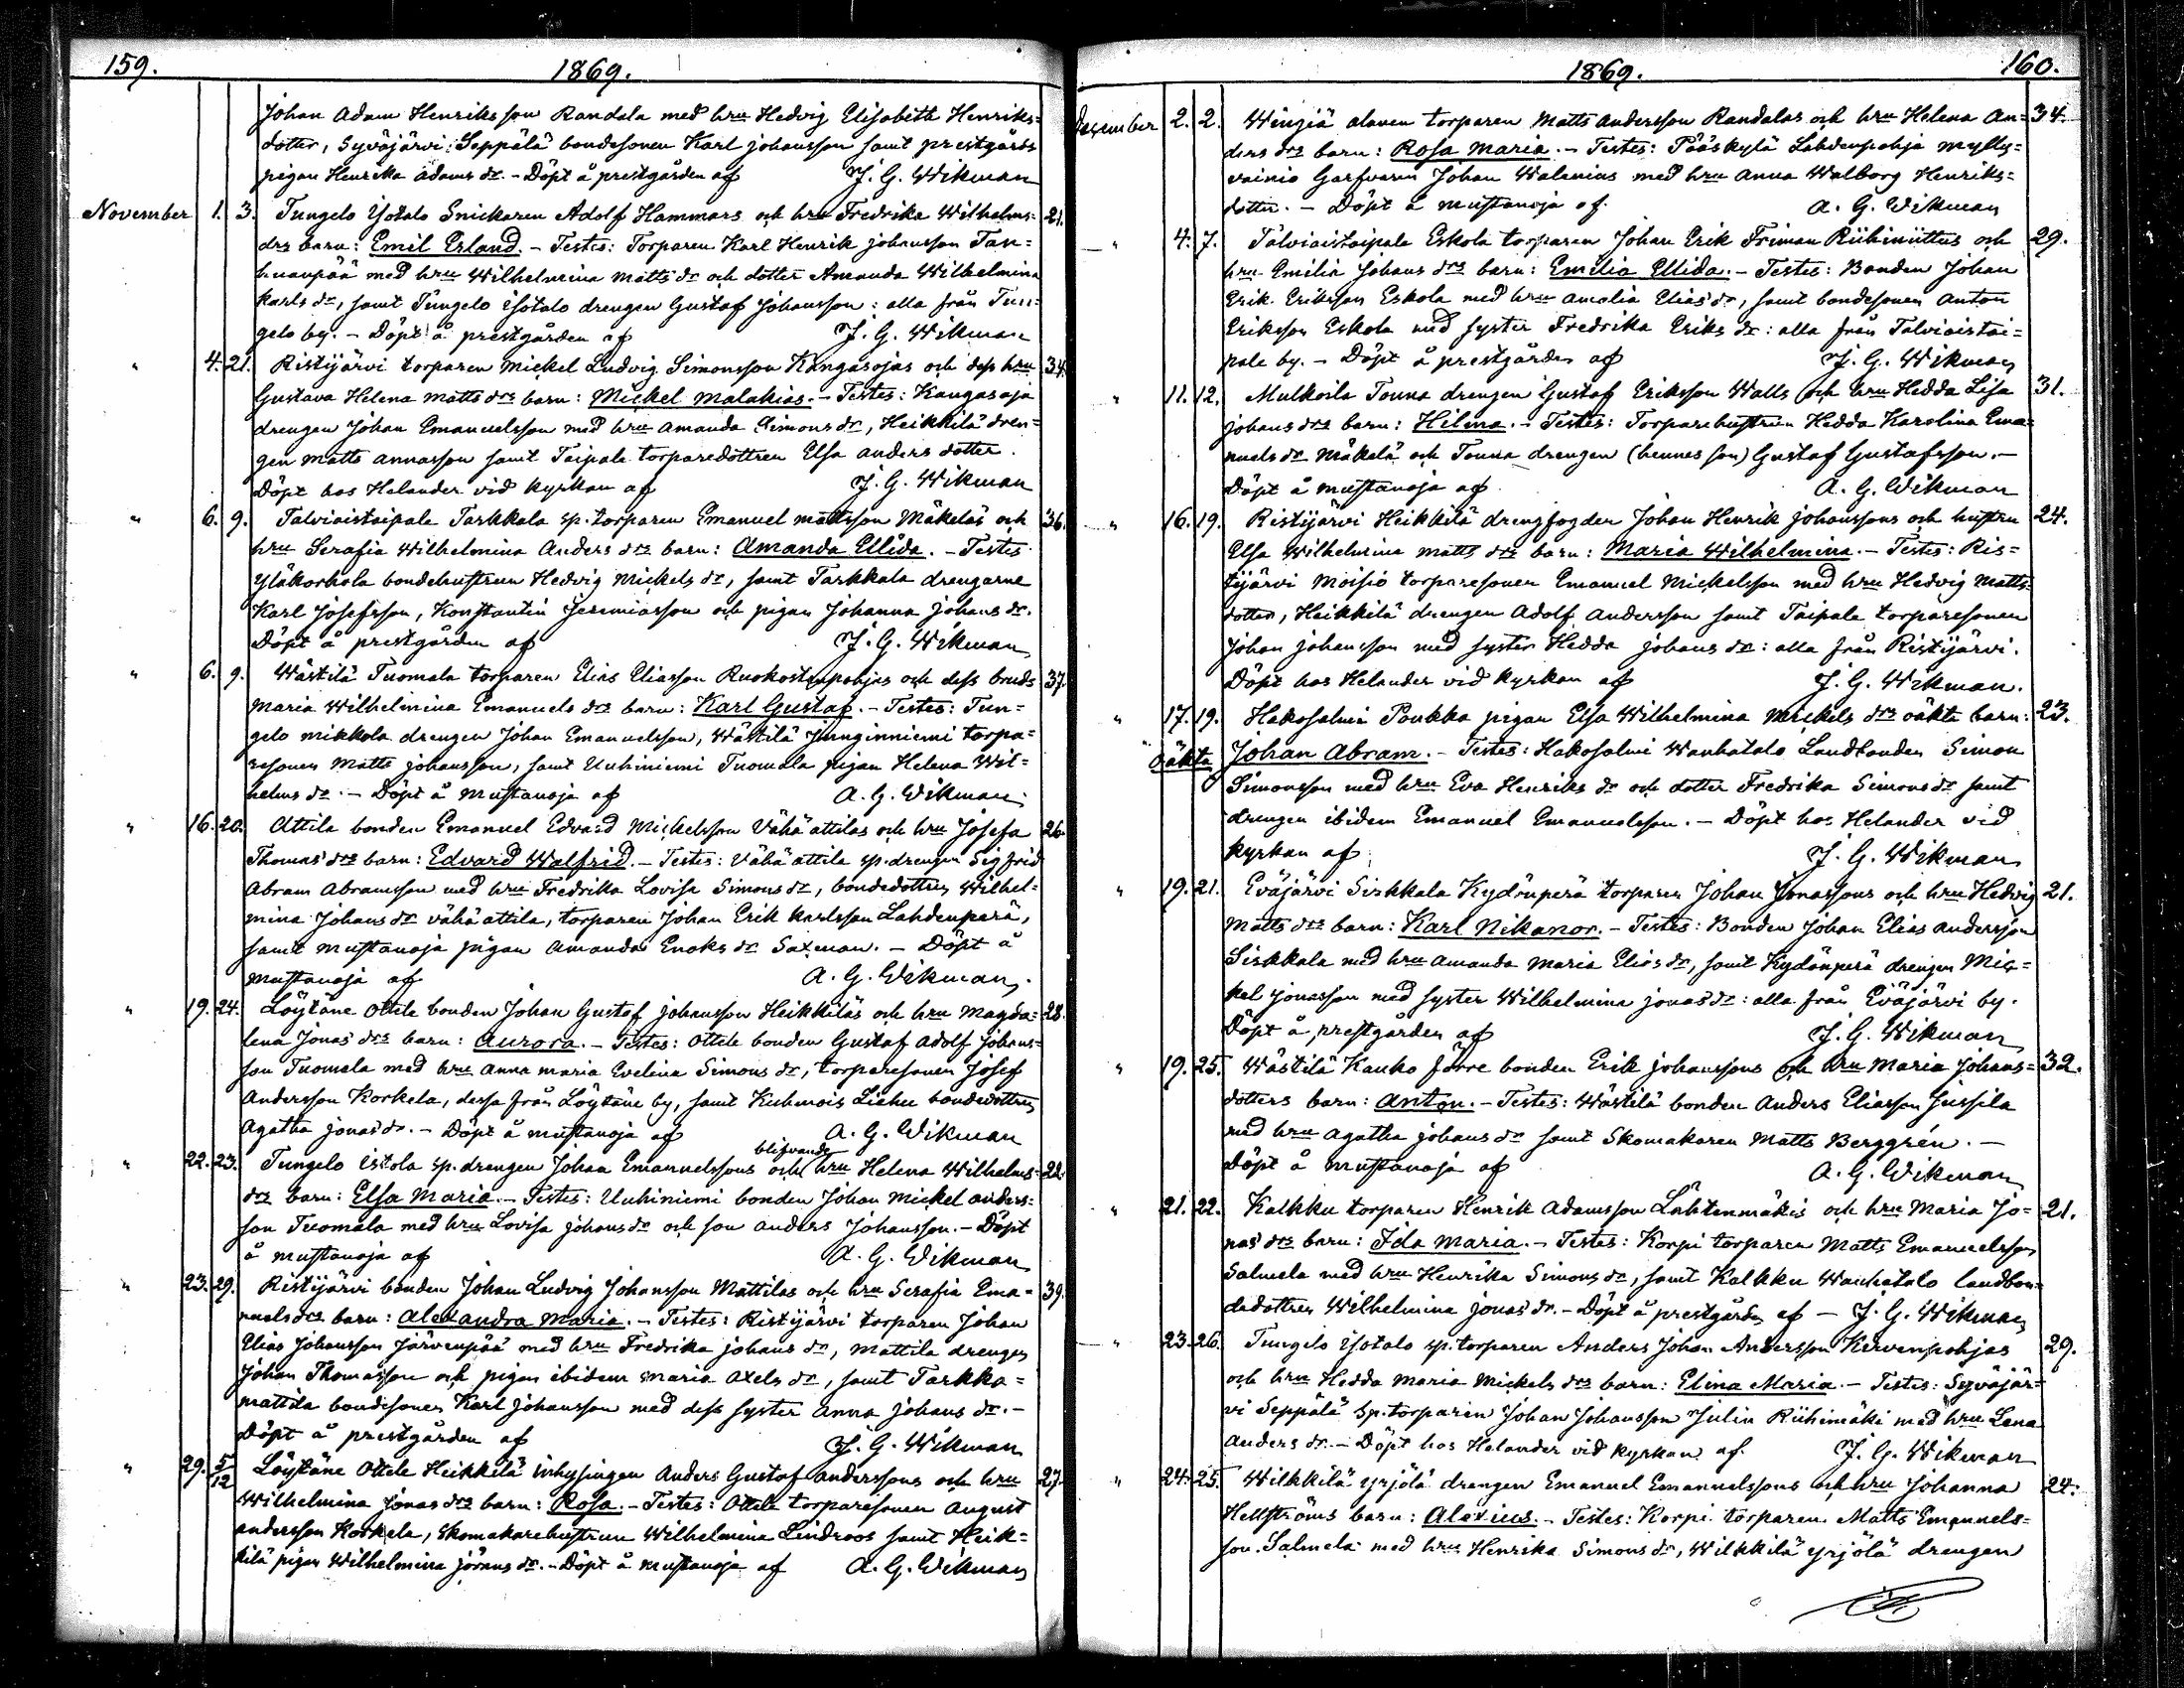 159.
1869.
Johan Adam Henriksson Randala med hru Hedvig Elisabeth Henriks=
dotter, Syväjärvi Seppälä bondesonen Karl Johansson samt prestgårds
pigan Henrika Adams dr. – Döpt å prestgården af J. G. Wikman
November 1. 3. Tungelo Ysotalo Snickaren Adolf Hammars och hru Fredrika Wilhelms= 21.
drs barn: Emil Erland. – Testes: Torparen Karl Henrik Johansson Tan=
huanpää med hru Wilhelmina Matts dr och dotter Amanda Wilhelmina
Karls dr, samt Tungelo Isotalo drengen Gustaf Johansson: alla från Tun=
gelo by. – Döpt å prestgården af J. G. Wikman
" 4. 21. Ristijärvi torparen Mickel Ludvig Simonsson Kangasojas och dess hru 34.
Gustava Helena Matts drs barn: Mickel Malakias. – Testes: Kangasoja
drengen Johan Emanuelsson med hru Amanda Simons dr, Heikkilä dren=
gen Matts Annasson samt Taipale torparedottren Elsa Anders dotter.
Döpt hos Helander vid kyrkan af J. G. Wikman
" 6. 9. Talviaistaipale Tarkkala sp. torparen Emanuel Mattsson Mäkeläs och 36.
hru Serafia Wilhelmina Anders drs barn: Amanda Ellida. – Testes
Yläkorhola bondehustrun Hedvig Mickels dr, samt Tarkkala drengarne
Karl Josefsson, Konstantin Jeremiasson och pigan Johanna Johans dr.
Döpt å prestgården af J. G. Wikman
" 6. 9. Wästilä Tuomala torparen Elias Eliasson Ruokostenpohjas och dess bruds 37.
Maria Wilhelmina Emanuels drs barn: Karl Gustaf. – Testes: Tun=
gelo Mikkola drengen Johan Emanuelsson, Wästilä Junginniemi torpa=
resonen Matts Johansson, samt Uuhiniemi Tuomala pigan Helena Wil=
helms dr. – Döpt å Mustanoja af A. G. Wikman
" 16. 20. Attila bonden Emanuel Edvard Mickelsson Vähäattilas och hru Josefa 26.
Thomas drs barn: Edvard Walfrid. – Testes: Vähäattila sp. drengen Sigfrid
Abram Abramsson med hru Fredrika Lovisa Simons dr, bondedottren Wilhel=
mina Johans dr Vähäattila, torparen Johan Erik Karlsson Lahdenperä,
samt Mustanoja pigan Amanda Enoks dr Saxman. – Döpt å
Mustanoja af A. G. Wikman
" 19. 24. Löytäne Ottile bonden Johan Gustaf Johansson Heikkiläs och hru Magda= 28.
lena Jonas drs barn: Aurora. – Testes: Ottile bonden Gustaf Adolf Johans=
son Tuomala med hru Anna Maria Evelina Simons dr, torparesonen Josef
Andersson Korkela, dessa från Löytäne by, samt Kuhmois Liehu bondedottren
Agatha Jonas dr. – Döpt å Mustanoja af A. G. Wikman
blifvande
" 22. 23. Tungelo Istola sp. drengen Johan Emanuelssons och hru Helena Wilhelms= 22.
drs barn: Elsa Maria. – Testes: Uuhiniemi bonden Johan Mickel Anders=
son Tuomala med hru Lovisa Johans dr och son Anders Johansson. – Döpt
å Mustanoja af A. G. Wikman
" 23. 29. Ristijärvi bonden Johan Ludvig Johansson Mattilas och hru Serafia Ema= 39.
nuels drs barn: Alexandra Maria. – Testes: Ristijärvi torparen Johan
Elias Johansson Järvenpää med hru Fredrika Johans dr, Mattila drengen
Johan Thomasson och pigan ibidem Maria Axels dr, samt Tarkka=
mattila bondesonen Karl Johansson med dess syster Anna Johans dr. –
Döpt å prestgården af J. G. Wikman
" 29. 5/12 Löytäne Ottile Heikkilä inhysingen Anders Gustaf Anderssons och hru 27.
Wilhelmina Jonas drs barn: Rosa. – Testes: Ottile torparesonen August
Andersson Korkela, Skomakarehustrun Wilhelmina Lindroos samt Heik=
kilä pigan Wilhelmina Jörans dr. – Döpt å Mustanoja af A. G. Wikman
1869.
160.
December 2. 2. alanen torparen Matts Andersson Randalas och hru Helena An= 34.
ders drs barn: Rosa Maria. – Testes: Pääskylä Lahdenpohja Mylly=
vainio Garfvaren Johan Walenius med hru Anna Walborg Henriks=
dotter. – Döpt å Mustanoja af A. G. Wikman
" 4. 7. Talviaistaipale Eskola torparen Johan Erik Friman Riihiniittus och 29.
hru Emilia Johans drs barn: Emilia Ellida. – Testes: Bonden Johan
Erik Eriksson Eskola med hru Amalia Elias dr, samt bondesonen Anton
Eriksson Eskola med syster Fredrika Eriks dr: alla från Talviaistai=
pale by. – Döpt å prestgården af J. G. Wikman
" 11. 12. Mulkoila Touna drengen Gustaf Eriksson Walls och hru Hedda Lisa 31.
Johans drs barn: Helma. – Testes: Torparehustrun Hedda Karolina Ema=
nuels dr Mäkelä och Touna drengen (hennes son) Gustaf Gustafsson. –
Döpt å Mustanoja af A. G. Wikman
" 16. 19. Ristijärvi Heikkilä drengfogden Johan Henrik Johanssons och hustru 24.
Elsa Wilhelmina Matts drs barn: Maria Wilhelmina. – Testes: Ris=
tijärvi Moisio torparesonen Emanuel Mickelsson med hru Hedvig Matts
dotter, Heikkilä drengen Adolf Andersson samt Taipale torparesonen
Johan Johansson med syster Hedda Johans dr: alla från Ristijärvi.
Döpt hos Helander vid kyrkan af J. G. Wikman.
" 17. 19. Hakosalmi Poukka pigan Elsa Wilhelmina Mickels drs oäkta barn: 23.
Oäkta Johan Abram. – Testes: Hakosalmi Wanhatalo Landbonden Simon
Simonsson med hru Eva Henriks dr och dotter Fredrika Simons dr samt
drengen ibidem Emanuel Emanuelsson. – Döpt hos Helander vid
kyrkan af J. G. Wikman
" 19. 21. Eväjärvi Sirkkala Kydönperä torparen Johan Jonassons och hru Hedvig 21.
Matts drs barn: Karl Nikanor. – Testes: Bonden Johan Elias Andersson
Sirkkala med hru Amanda Maria Elias dr, samt Kydönperä drengen Mic=
kel Jonasson med syster Wilhelmina Jonas dr: alla från Eväjärvi by.
Döpt å prestgården af J. G. Wikman
" 19. 25. Wästilä Kauko Jörre bonden Erik Johanssons och hru Maria Johans= 32.
dotters barn: Anton. – Testes: Wästilä bonden Anders Eliasson Jussila
med hru Agatha Johans dr samt Skomakaren Matts Berggrén. –
Döpt å Mustanoja af A. G. Wikman
" 21. 22. Kalkku torparen Henrik Adamsson Lähteenmäkis och hru Maria Jo= 21.
nas drs barn: Ida Maria. – Testes: Korpi torparen Matts Emanuelsson
Salmela med hru Henrika Simons dr, samt Kalkku Wanhatalo landbon=
dedottren Wilhelmina Jonas dr. – Döpt å prestgården af – J. G. Wikman
" 23. 26. Tungelo Ysotalo sp. torparen Anders Johan Andersson Kirvenpohjas 29.
och hru Hedda Maria Mickels drs barn: Elina Maria. – Testes: Syväjär=
vi Seppälä Sp. torparen Johan Johansson Julin Riihimäki med hru Lena
Anders dr. – Döpt hos Helander vid kyrkan af J. G. Wikman
" 24. 25. Wilkkilä Yrjölä drengen Emanuel Emanuelssons och hru Johanna 24.
Hellströms barn: Alexius. – Testes: Korpi torparen Matts Emanuels=
son Salmela med hru Henrika Simons dr, Wilkkilä Yrjölä drengen